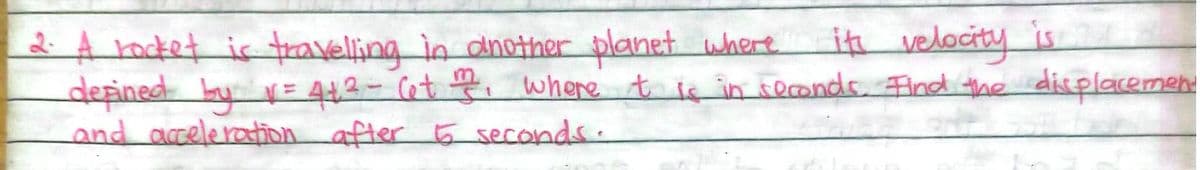 2. A rocket is travelling in another planet where its velocity is
defined by v = 4t² - 6t m/s, where t is in seconds. Find the displacemen
and acceleration after 5 seconds.